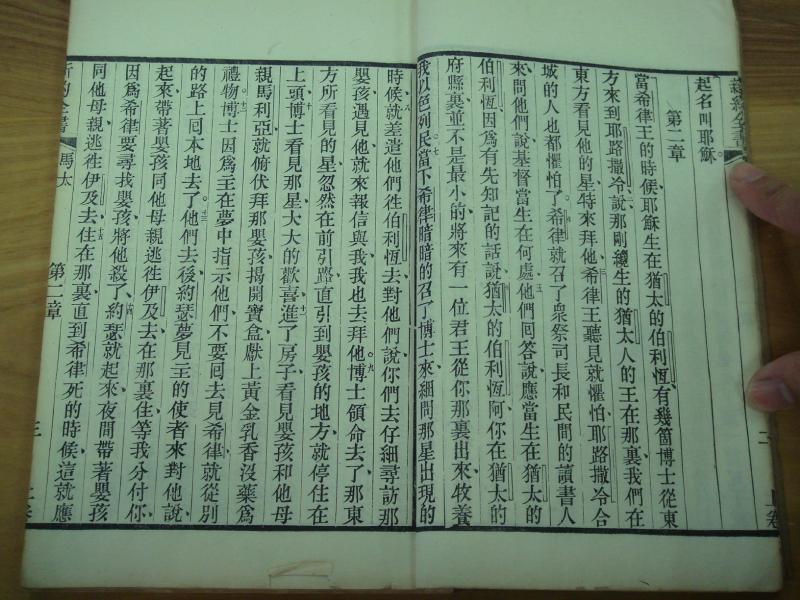 起名叫耶穌。
第二章
當希律王的時候、耶穌生在猶太的伯利恆、有幾箇博士從東
方來到耶路撒冷、說那剛纔生的猶太人的王在那裏、我們在
東方看見他的星、特來拜他、希律王聽見就懼怕、耶路撒冷合
城的人也都懼怕了。希律就召了衆祭司長和民間的讀書人
來、問他們說、基督當生在何處、他們回答說、應當生在猶太的
伯利恆、因爲有先知記的話說、猶太的伯利恆阿、你在猶太的
府縣裏、並不是最小的、將來有一位君王從你那裏出來、牧養
我以色列民。當下希律暗暗的召了博士來、細問那星出現的
時候、就差遣他們往伯利恆去、對他們說、你們去仔細尋訪那
嬰孩、遇見他、就來報信與我、我也去拜他。博士領命去了、那東
方所看見的星、忽然在前引路、直引到嬰孩的地方、就停住在
上頭、博士看見那星、大大的歡喜、進了房子、看見嬰孩和他母
親馬利亞、就俯伏拜那嬰孩、揭開寶盒、獻上黃金乳香沒藥爲
禮物。博士因爲主在夢中指示他們、不要回去見希律、就從別
的路上回本地去了。他們去後、約瑟夢見主的使者來對他說、
起來、帶著嬰孩同他母親逃往伊及去、在那裏住、等我分付你、
因爲希律要尋找嬰孩、將他殺了、約瑟就起來、夜間帶著嬰孩
同他母親逃往伊及去、住在那裏、直到希律死的時候、這就應
新約全書
馬太
第二章
三
上卷